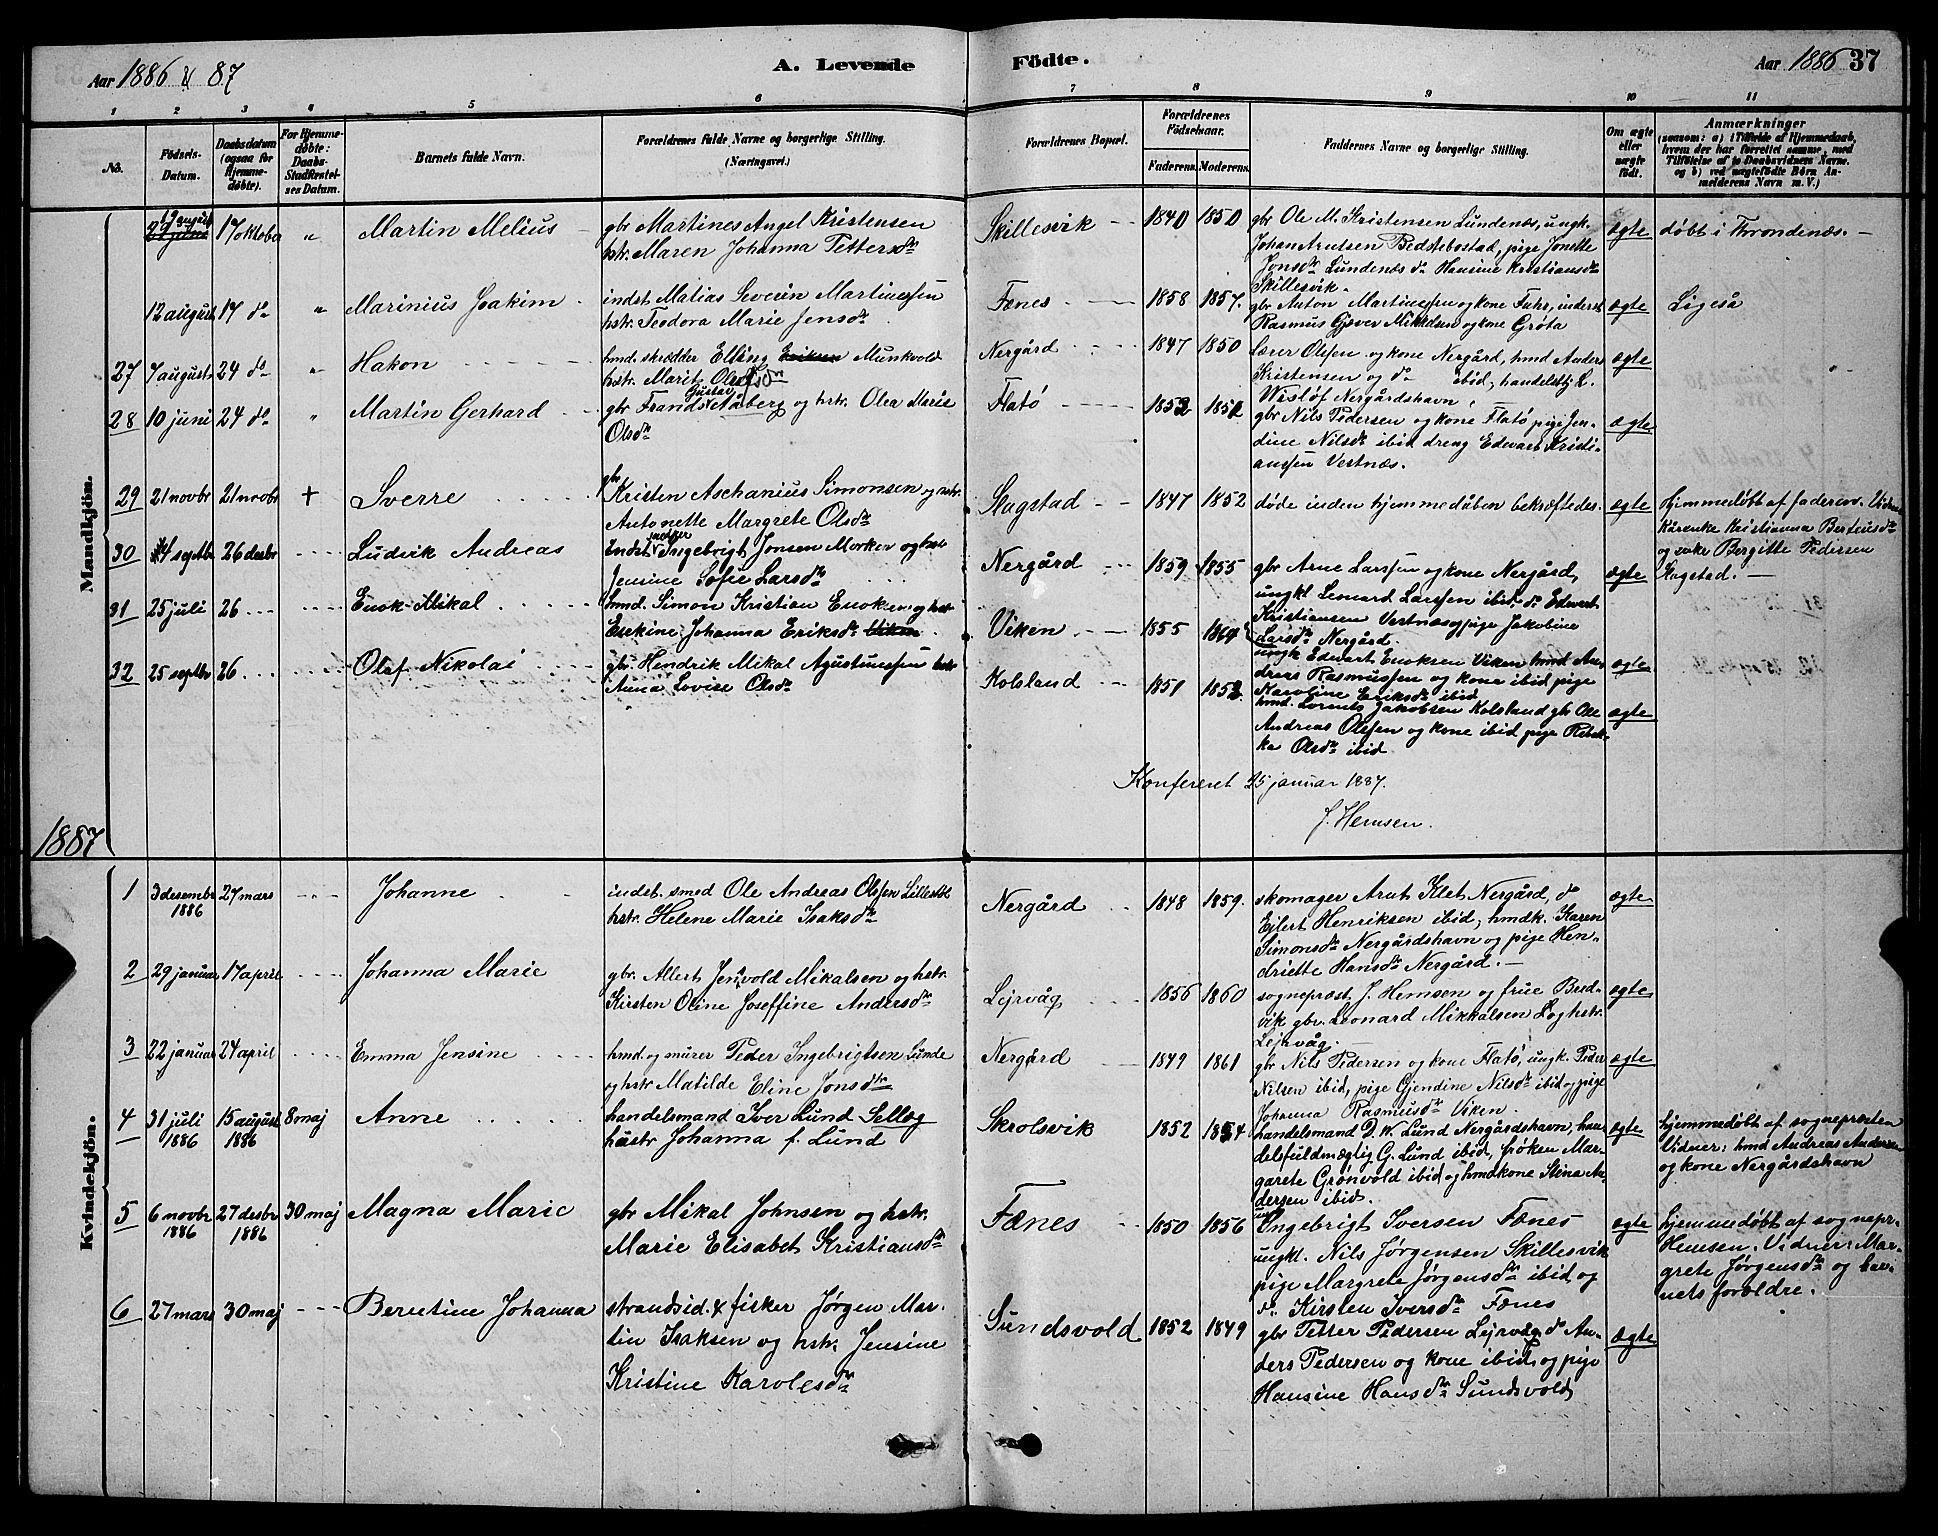 Aar 1886 & 87
A. Levende
Födte.
Aar 1886 37
1 2 3 4 5 6 7 8 9 10 11
No.
Födsels-Datum.
Daabsdatum (ogsaa for Hjemmedøbte).
For Hjemmedøbte: Daabs-Stadfæstelses Datum.
Barnets fulde Navn.
Forældrenes fulde Navne og borgerlige Stilling. (Næringsvei.)
Forældrenes Bopæl.
Forældrenes Födselsaar.
Faderens. Moderens.
Faddernes Navne og borgerlige Stilling.
Om ægte eller uægte født.
Anmærkninger
(saasom: a) i Tilfælde af Hjemmedaab, hvem der har forrettet samme, med Tilføielse af to Daabsvidners Navne. og b) ved uægtefødte Børn Anmelderens Navn m. V.)
Mandkjön.
19 august 17 oktober " Martin Melius
gbr Martines Angel Kristensen
hstr. Maren Johanna Pettersdr
Skillesvik 1840 1850
gbr Ole M. Kristensen Lundenæs, ungk.
Johan Arntsen Bedstebostad, pige Jonette
Jonsdr Lundenæs do Hansine Kristiansdr
Skillesvik.
ægte døbt i Trondenæs.
12 august 17 do " Marinius Joakim
indst Matias Severin Martinussen
hstr. Teodora Marie Jensdr.
Fænes 1858 1857.
gbr Anton Martinussen og kone Fuhr, inderst
Rasmus Gjøver Mikkelsen og kone Grøta
ægte Ligeså
27 7 august 24 do " Hakon
hmd. skrædder Elling Eriksen Munkvold
hstr. Marit Olsdr
Nergård 1847 1850
Lærer Olsen og kone Nergård, hmd Anders
Kristensen og do ibid, handelsbtj. K.
Wisløf Nergårdshavn
ægte
28 10 juni 24 do " Martin Gerhard
gbr Frands Gustav Åberg og hstr. Olea Marie
Olsdr
Flatø 1852 1851
gbr Nils Pedersen og kone Flatø, pige Jen-
dine Nilsdr ibid dreng Edvart Kristi-
anssen Vestnæs.
ægte
29 21 novbr 21 novbr + Sverre
gbr Kristen Aschanius Simonsen og hstr.
Antonette Margrete Olsdr
Slagstad 1847 1852
døde inden hjemmedåben bekræftedes.
ægte
Hjemmedøbt af faderen. Vidner
Kårenke Kristianna Berteusdr
og enke Bergitte Pedersen
Slagstad.
30 14 septbr 26 desbr Ludvik Andreas
Indst Ingebrigt Jonsen Morken og hstr
Jensine Sofie Larsdr
Nergård 1859 1855
gbr Arne Larssen og kone Nergård,
ungkl Leonard Larssen ibid do Edvart
Kristiansen Vestnæs og pige Jakobine
Larsdr Nergård.
ægte
31 25 juli 26 Enok Mikal
hmd. Simon Kristian Enoksen og hstr
Esekine Johanna Eriksdr Viken
Viken 1855 1864
ungk Edvart Enoksen Viken hmd An-
dreas Rasmussen og kone ibid pige
Karoline Eriksdr ibid
ægte
32 25 septbr 26 Olaf Nikolai
gbr. Hendrik Mikal Agustinussen hstr
Anna Lovise Olsdr
Kolsland 1851 1852
hmd. Lorents Jakobsen Kolsland gbr Ole
Andreas Olsen og kone ibid pige Rebek-
ka Olsdr ibid
ægte
Konfereret 25 januar 1887.
J. Hemsen.
1887
Kvindekjön.
1 3 desembr 1886 27 mars Johanne
indeb. smed Ole Andreas Olssen
hstr. Helene Marie Isaksdr
Nergård 1848 1859.
skomager Arnt Klet Nergård, do
Ejlert Henriksen ibid, hmdk. Karen
Simonsdr Nergårdshavn og pige Hen-
driette Hansdr Nergård.
ægte
2 29 januar 17 april Johanna Marie
gbr. Allert Jenvold Mikalsen og hstr.
Kirsten Oline Joseffine Andersdr
Lejrvåg 1856 1860
sogneprest J. Hemsen og frue Bred-
vik gbr. Leonard Mikkalsen L og hstr.
Lejrvåg.
ægte
3 22 januar 24 april Emma Jensine
hmd. og murer Peder Ingebrigtsen Lunde
og hstr Matilde Eline Jonsdtr
Nergård 1849 1861
gbr Nils Pedersen og kone Flatø, ungk. Peder
Nilsen ibid, pige Gjendine Nilsdr ibid og pige
Johanna Rasmusdr Viken.
ægte
4 31 juli 1886 15 august 1886 8 maj Anne
handelsmand Iver Lund Selleg
hustr Johanna f. Lund
Skrolsvik 1852 1854
handelsmand D. W. Lund Nergårdshavn, han-
delsfuldmægtig G. Lund ibid, frøken Mar-
garete Grønvold ibid og hmdkone Stina An-
dersen ibid.
ægte
hjemmedøbt af sognepræsten
Vidner: hmd Andreas Andersen
og kone Nergårdshavn
5 6 novbr 1886 27 desbr 1886 30 maj Magna Marie
gbr Mikal Johnsen og hstr.
Marie Elisabet Kristiansdr
Fænes 1850 1856
ung Ingebrigt Iversen Fænes
ungkl. Nils Jørgensen Skillesvik
pige Margrete Jørgensdtr ibid, og
do. Kirsten Iversdr Fænes
ægte
hjemmedøbt af sognepr.
Hemsen. Vidner: Mar-
grete Jørgensdr og bar-
nets forældre.
6 27 mars 30 maj Berntine Johanna
strandsid. & fisker Jørgen Mar-
tin Isaksen og hstr. Jensine
Kristine Karolesdr
Sundsvold 1852 1849
gbr Petter Pedersen Lejrvåg do An-
ders Pedersen og kone ibid, og pige
Hansine Hansdr Sundsvold
ægte